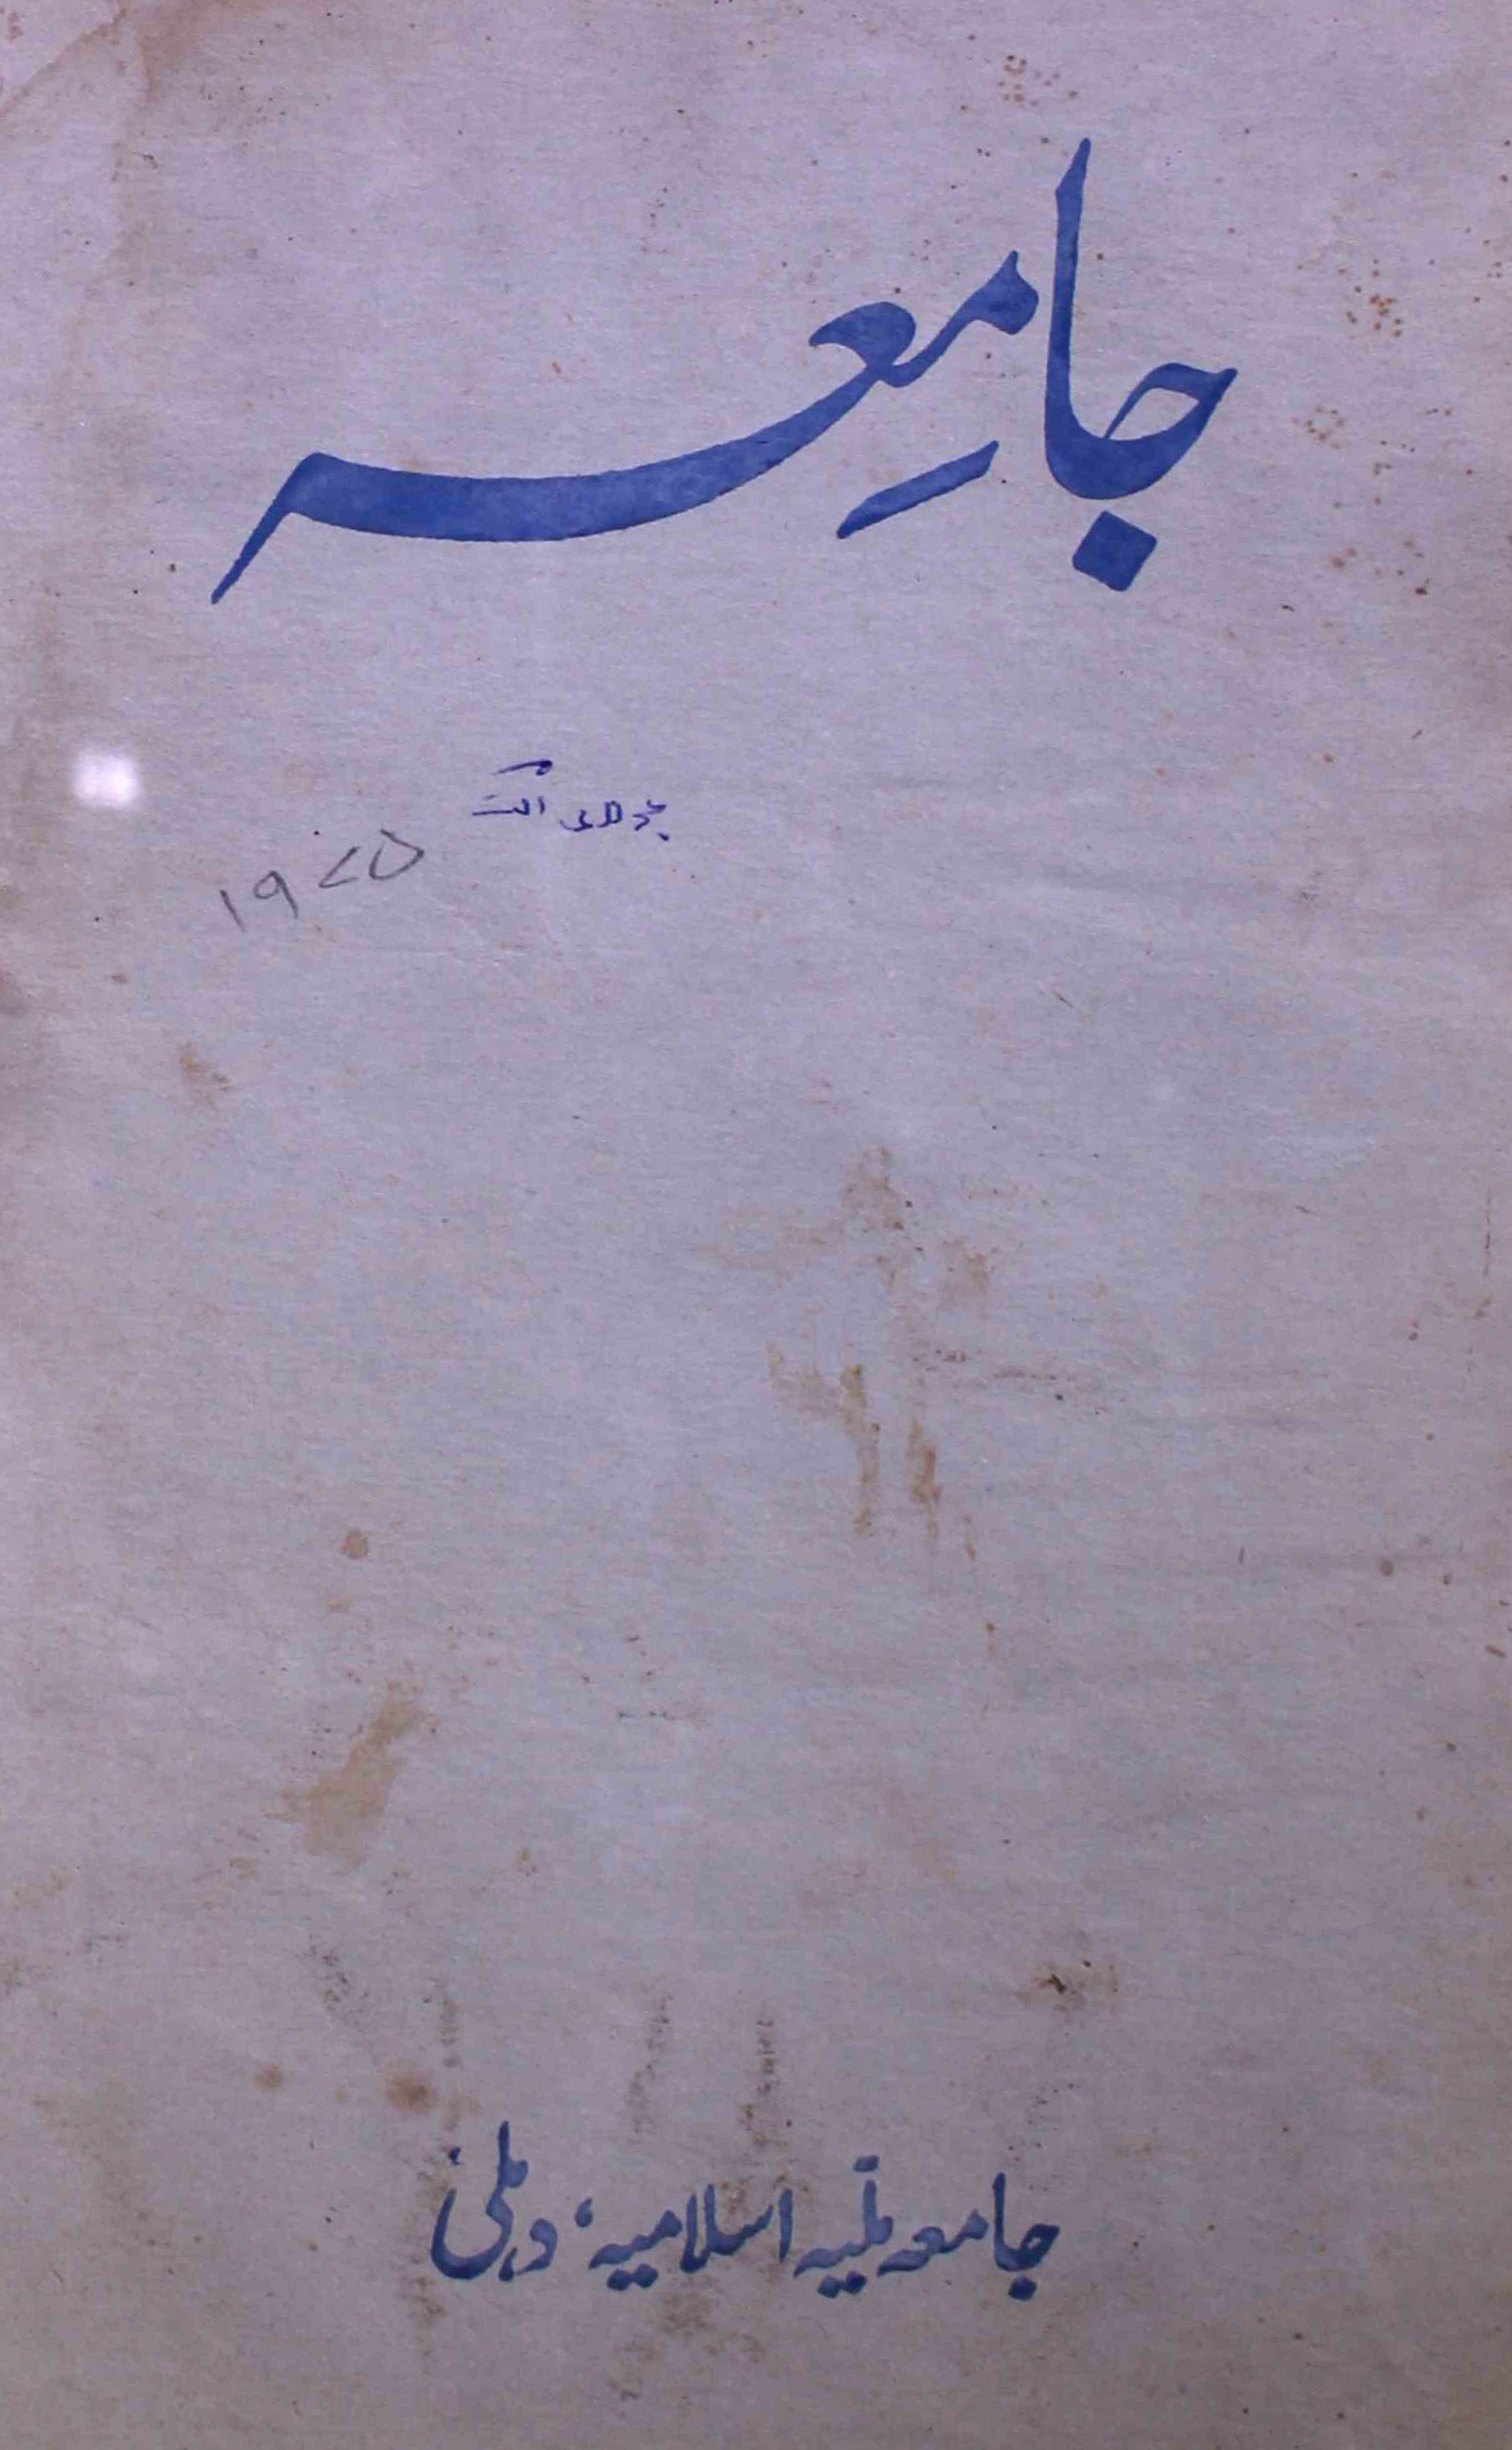 جامِعہ
اگست
۱۹۷۵
جامعہ ملّیہ اسلامیہ، دہلی